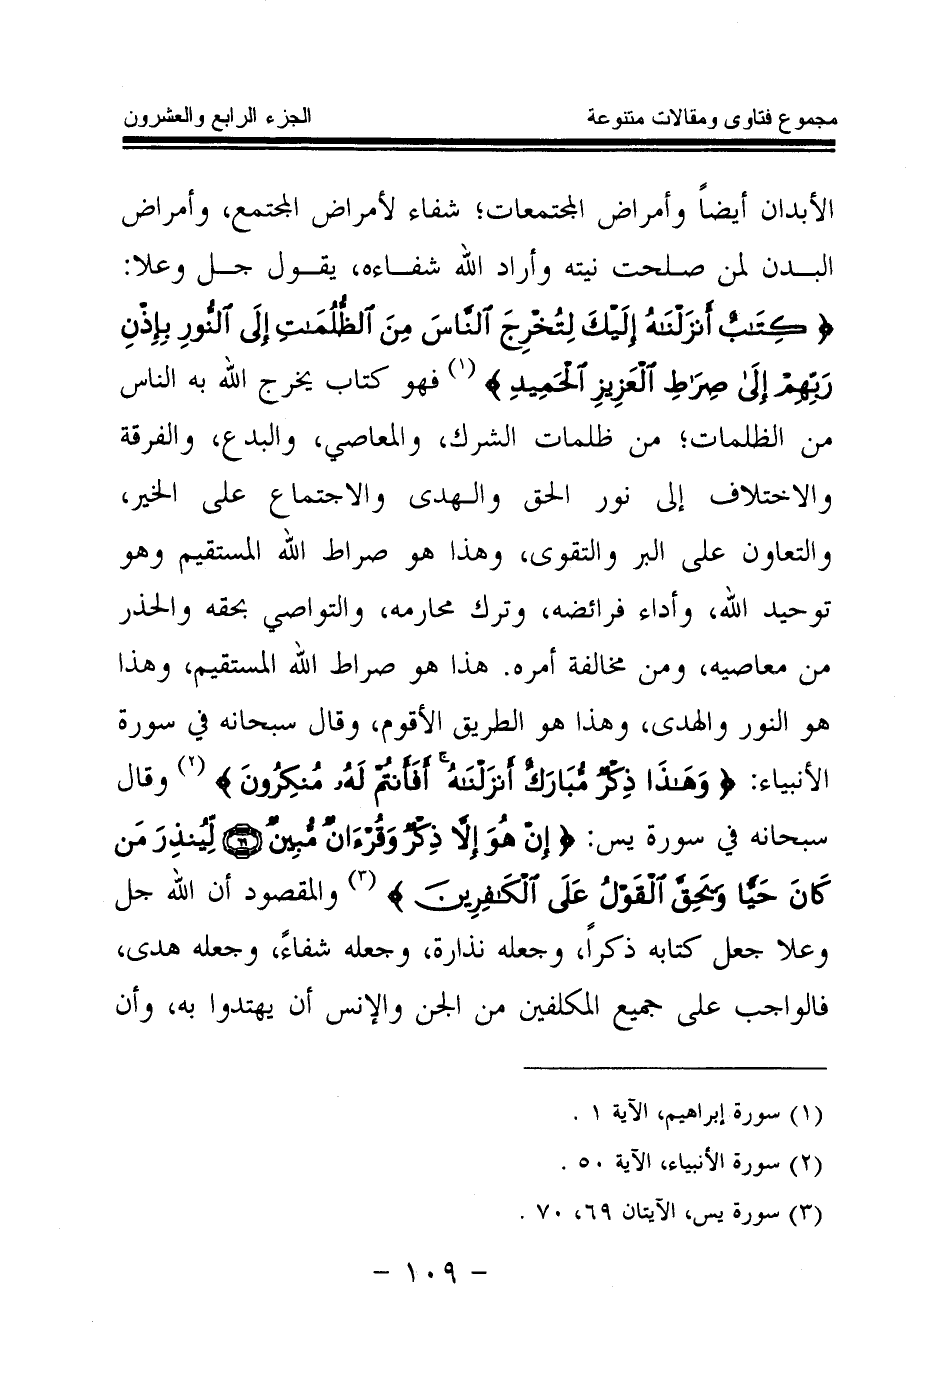 مجموع فتاوى ومقالات متنوعة الجزء الرابع والعشرون
الأبدان أيضاً وأمراض المجتمعات؛ شفاء لأمراض المجتمع، وأمراض
البـدن لمن صلحت نيته وأراد الله شفـاءه، يقـول جـل وعلا:
﴿ كِتَٰبٌ أَنزَلْنَٰهُ إِلَيْكَ لِتُخْرِجَ ٱلنَّاسَ مِنَ ٱلظُّلُمَٰتِ إِلَى ٱلنُّورِ بِإِذْنِ
رَبِّهِمْ إِلَىٰ صِرَٰطِ ٱلْعَزِيزِ ٱلْحَمِيدِ ﴾ (١) فهو كتاب يخرج الله به الناس
من الظلمات؛ من ظلمات الشرك، والمعاصي، والبدع، والفرقة
والاختلاف إلى نور الحق والهدى والاجتماع على الخير،
والتعاون على البر والتقوى، وهذا هو صراط الله المستقيم وهو
توحيد الله، وأداء فرائضه، وترك محارمه، والتواصي بحقه والحذر
من معاصيه، ومن مخالفة أمره. هذا هو صراط الله المستقيم، وهذا
هو النور والهدى، وهذا هو الطريق الأقوم، وقال سبحانه في سورة
الأنبياء: ﴿ وَهَٰذَا ذِكْرٌ مُّبَارَكٌ أَنزَلْنَٰهُ ۚ أَفَأَنتُمْ لَهُۥ مُنكِرُونَ ﴾ (٢) وقال
سبحانه في سورة يس: ﴿ إِنْ هُوَ إِلَّا ذِكْرٌ وَقُرْءَانٌ مُّبِينٌ ۝٦٩ لِّيُنذِرَ مَن
كَانَ حَيًّا وَيَحِقَّ ٱلْقَوْلُ عَلَى ٱلْكَٰفِرِينَ ﴾ (٣) والمقصود أن الله جل
وعلا جعل كتابه ذكراً، وجعله نذارة، وجعله شفاءً، وجعله هدى،
فالواجب على جميع المكلفين من الجن والإنس أن يهتدوا به، وأن
(١) سورة إبراهيم، الآية ١ .
(٢) سورة الأنبياء، الآية ٥٠ .
(٣) سورة يس، الآيتان ٦٩، ٧٠ .
- ١٠٩ -